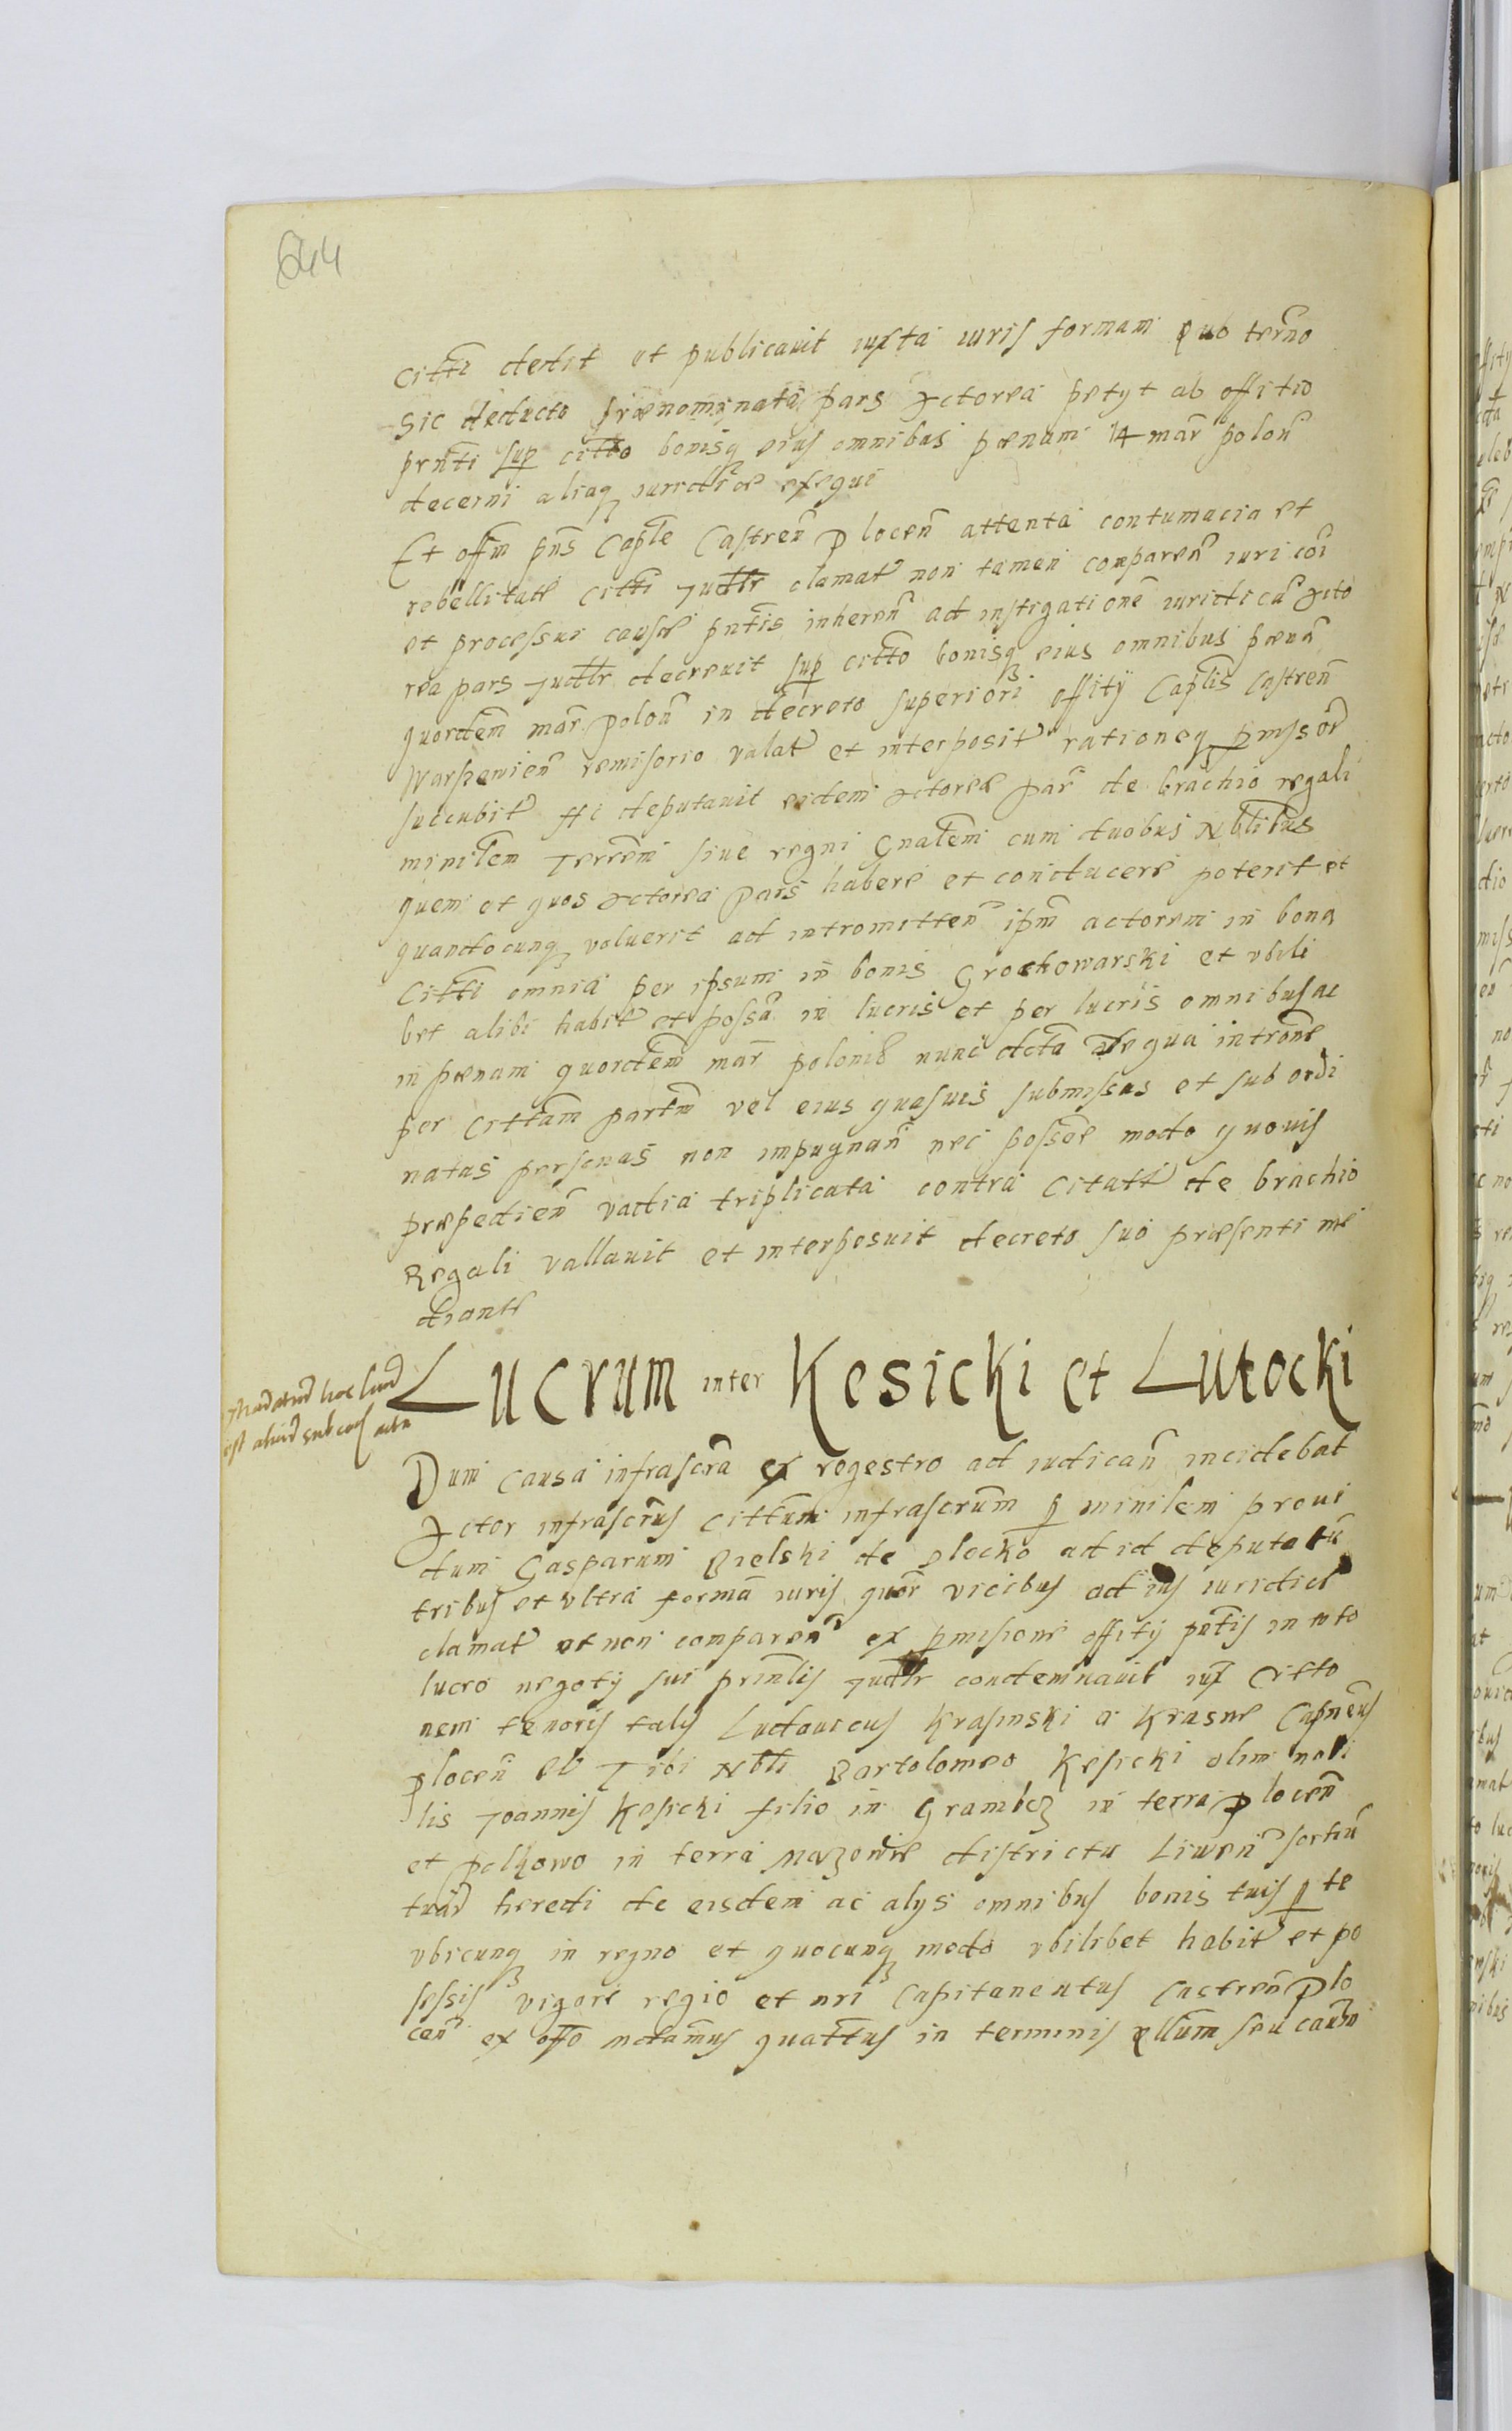 644
citti dedit et publicauit iuxta iuris formam Quo terno
sic deducto prænominata pars Actorea petyt ab offitio
prnti sup citto bonisq eius omnibus pœnam 14 mar polon
decerni aliaq iuridice exequi
Et offm pns Caple Castren Plocen attenta contumacia et
rebellitate citti Judtr clamat non tamen comparen iuri coi
et processui causæ pntis inheren ad instigatione iuridica Acto
rea pars Judtr decreuit sup citto bonisq eius omnibus pœna
quordem mar polon in decreto superiori offity Caplis Castren
Warszewien remisorio valat et interposit rationeq pmisor
succubit Ac deputauit eidem Actoreæ par de brachio regali
minilem Terrem siue regni Gnalem cum duobus Nblibus
quem et quos Actorea pars habere et conducere poterit et
quandocunq voluerit ad intromitten ipm actorem in bona
Citti omnia per ipsum in bonis Grochowarski et vbili
bet alibi habit et possa in lucris et per lucris omnibus ac
in pœnam quordem mar polonis nunc dcta qua introne
per cittam partem vel eius quasuis submissas et subordi
natas personas non impugnan nec possese modo quouis
præpedien vadia triplicata contra Citatu de brachio
Regali vallauit et interposuit decreto suo præsenti me
diante
Lucrum inter Kesicki et Lutocki
Mandatum hoc lucrum
est aliud sub acta
Dum causa infrascra ex regestro ad iudican incidebat
Actor infrascrus cittum infrascrum p minilem proui
dum Gasparum Bielski de Plocko ad id deputatu
tribus et vltra forma iuris quor vicibus ad ius iuridice
clamat et non comparen ex pmisione offity pntis in toto
lucro negoty sui prinlis Judtr condemnauit iux Citto
nem tenoris talis Ludouicus Krasinski a Krasne Capneus
plocen Tibi Nbli Bartolomeo Kesicki olim nobi
lis Joannis Kesicki filio in Grambcz in terra Plocen
et polkowo in terra Mazowie districtu Liwen sortiu
tuar heredi de eisdem ac alys omnibus bonis tuis p te
vbicunq in regno et quocunq modo vbilibet habit et po
sessis vigore regio et nri Capitaneatus Castren Plo
cen ex offo mdamus quattus in terminis qllum seu